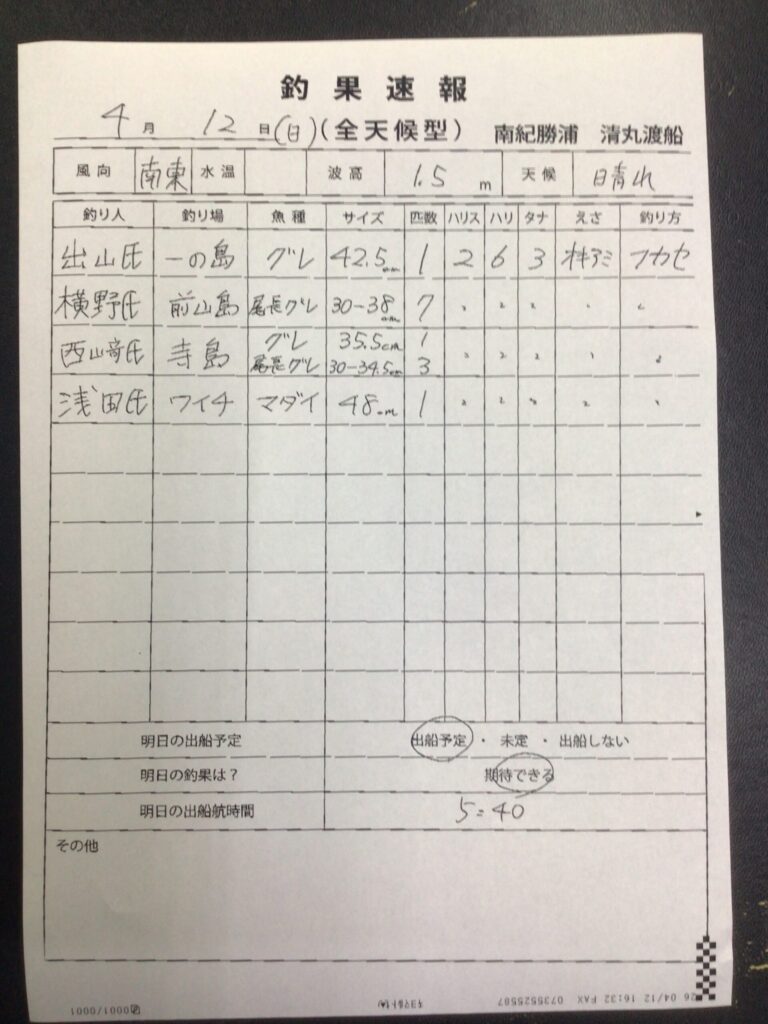 釣果速報
4月 12日(日)(全天候型) 南紀勝浦 清丸渡船
風向 南東 水温 波高 1.5 m 天候 晴れ
釣り人 釣り場 魚種 サイズ 匹数 ハリス ハリ タナ えさ 釣り方
出山氏 一の島 グレ 42.5cm 1 2 6 3 オキアミ フカセ
横野氏 前山島 尾長グレ 30-38cm 7 〃 〃 〃 〃 〃
西山奇氏 寺島 グレ 35.5cm 1
尾長グレ 30-34.5cm 3 〃 〃 〃 〃 〃
浅田氏 ワイチ マダイ 48cm 1 〃 〃 〃 〃 〃
明日の出船予定 出船予定 ・ 未定 ・ 出船しない
明日の釣果は? 期待できる
明日の出船航時間 5:40
その他
26 04/12 16:32 FAX 0735525587 ｷﾖﾏﾙﾄｾﾝ 0001/0001